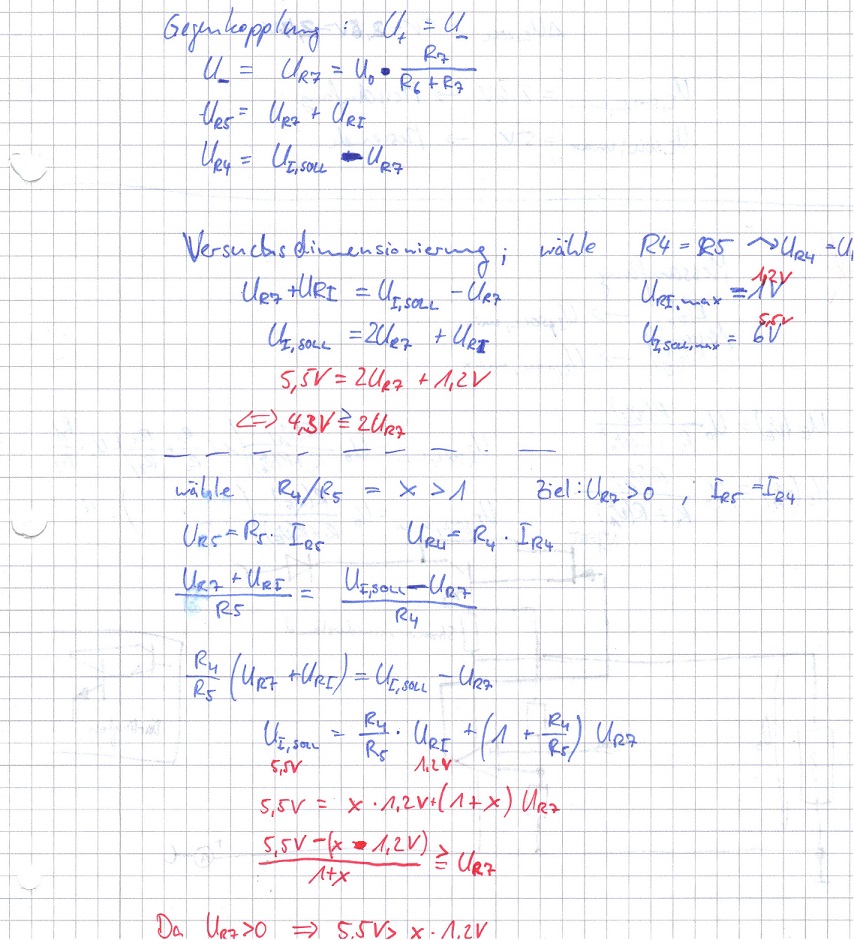 Gegenkopplung : U₊ = U₋
U₋ = U_R7 = U₀ · R₇ / (R₆ + R₇)
U_R5 = U_R7 + U_RI
U_R4 = U_I,SOLL − U_R7
Versuchsdimensionierung; wähle R4 = R5 ↝ U_R4 = U
U_R7 + U_RI = U_I,SOLL − U_R7 U_RI,max = 1V 1,2V
U_I,SOLL = 2U_R7 + U_RI U_I,SOLL,max = 6V 5,5V
5,5V = 2U_R7 + 1,2V
⟺ 4,3V ≧ 2U_R7
wähle R₄/R₅ = x > 1 Ziel: U_R7 > 0 ; I_R5 = I_R4
U_R5 = R₅ · I_R5 U_R4 = R₄ · I_R4
(U_R7 + U_RI) / R5 = (U_I,SOLL − U_R7) / R₄
R₄/R₅ (U_R7 + U_RI) = U_I,SOLL − U_R7
U_I,SOLL = R₄/R₅ · U_RI + (1 + R₄/R₅) U_R7
5,5V 1,2V
5,5V = x · 1,2V + (1+x) U_R7
(5,5V − (x · 1,2V)) / (1+x) ≧ U_R7
Da U_R7 > 0 ⇒ 5,5V > x · 1,2V